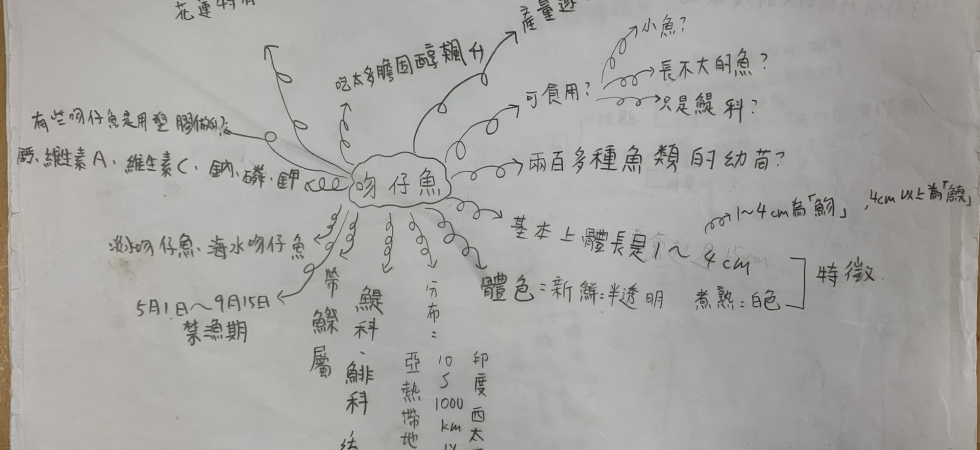 花蓮特有
產量逐
吃太多膽固醇飆升
小魚?
長不大的魚?
只是鯷科?
可食用?
有些吻仔魚是用塑膠做的?
鈣、維生素A、維生素C、鈉、磷、鉀
吻仔魚
兩百多種魚類的幼苗?
1~4cm為「魩」,4cm以上為「鱙」
基本上體長是1~4cm
特徵
體色:新鮮:半透明 煮熟:白色
淡水吻仔魚、海水吻仔魚
5月1日~9月15日
禁漁期
帶鰶屬
鯷科、鯡科
分布:
印度西太
10
5
1000
km
亞熱帶地